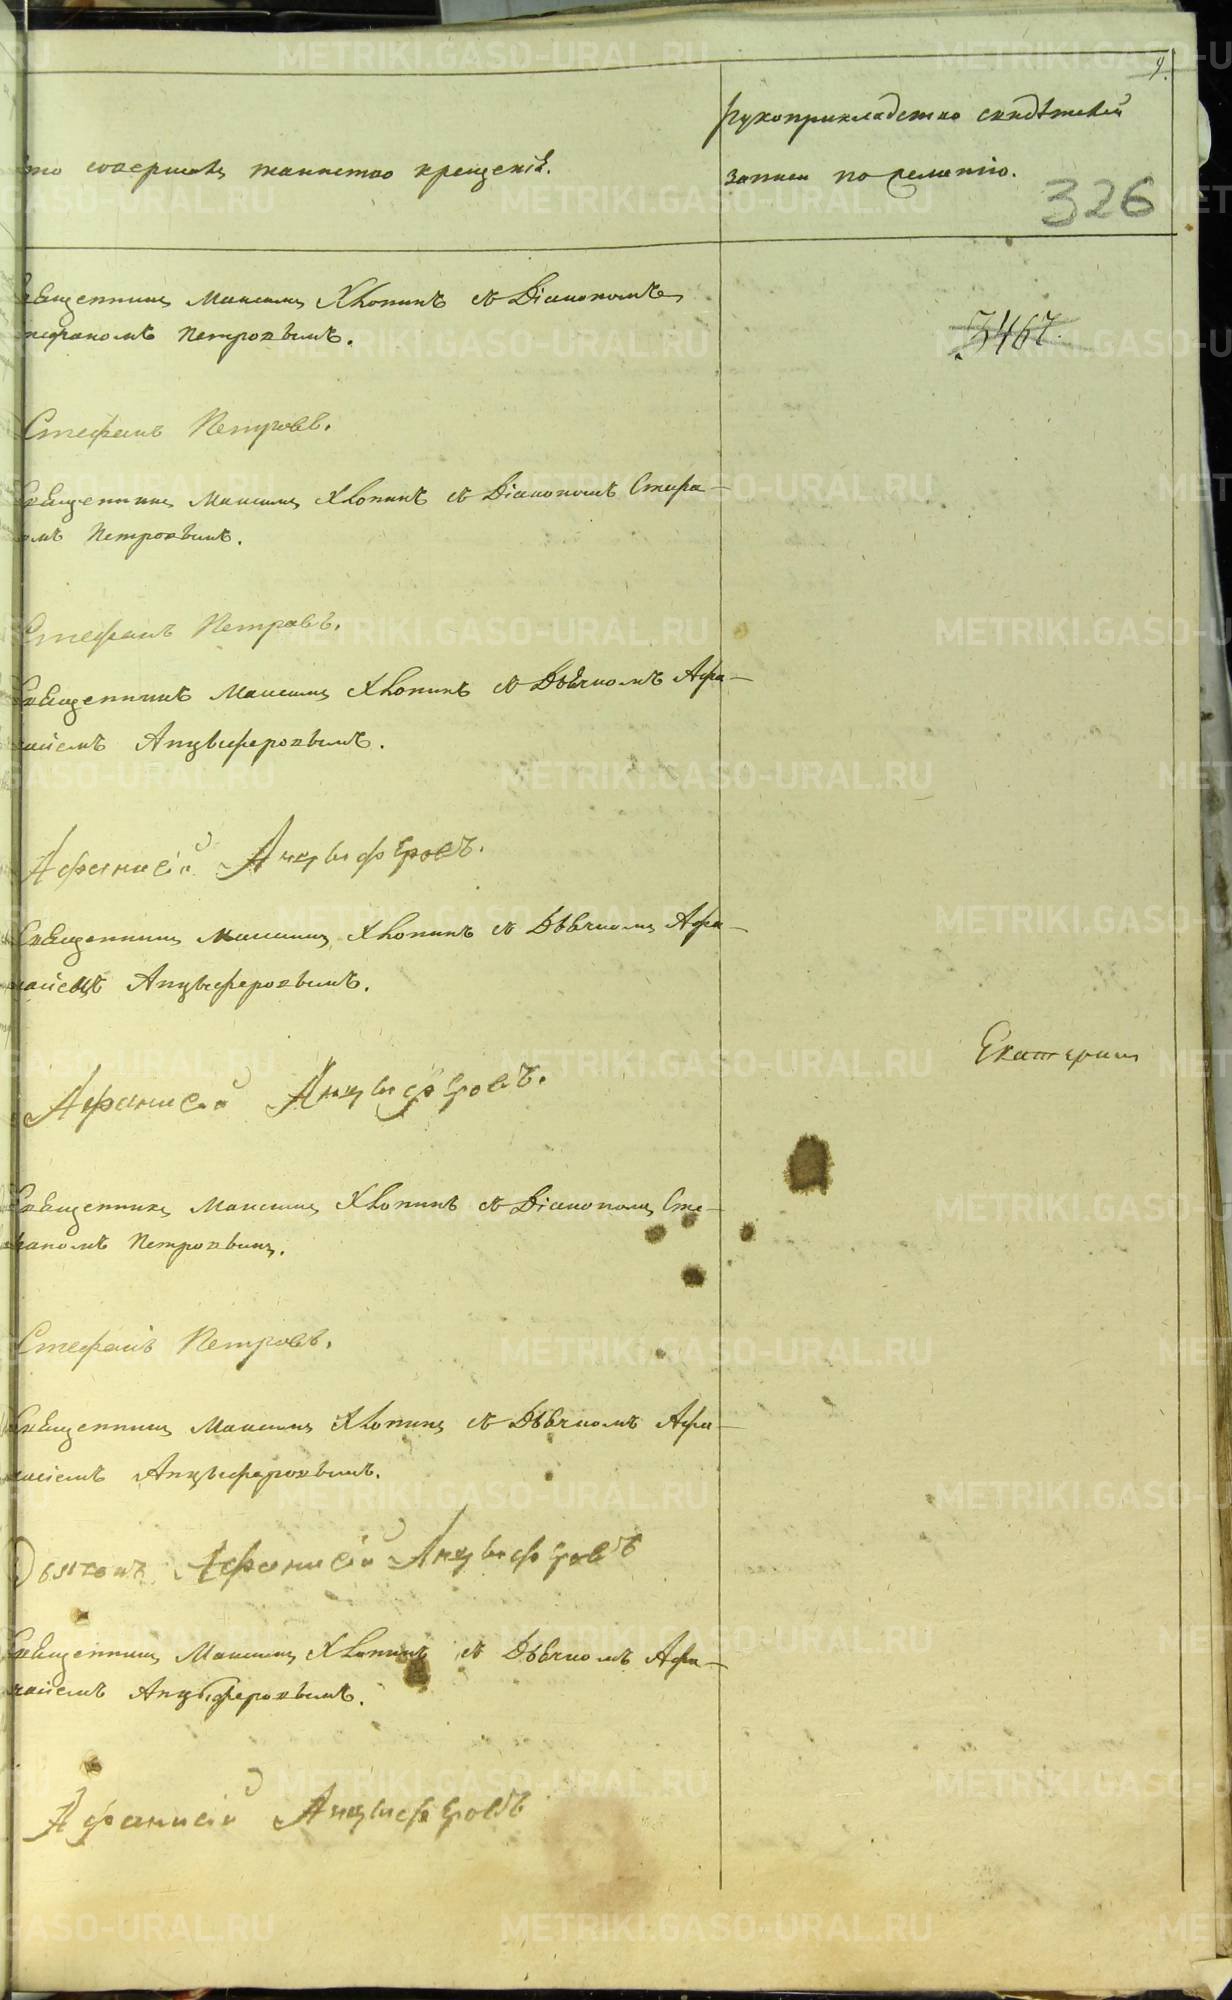 9.
рукоприкладство свидѣтелей
то совершалъ таинство крещенія.
записи по желанію.
326
Священникъ Максимъ Хлопинъ съ Діакономъ
Стефаномъ Петровымъ.
3467.
Стефанъ Петровъ.
Священникъ Максимъ Хлопинъ съ Діакономъ Стефа-
омъ Петровымъ.
Стефанъ Петровъ.
Священникъ Максимъ Хлопинъ съ Дьячкомъ Афа-
насіемъ Анцыферовымъ.
Афанасій Анцыферовъ.
Священникъ Максимъ Хлопинъ съ Дьячкомъ Афа-
насіемъ Анцыферовымъ.
Екатерин
Афанасій Анцыферовъ.
Священникъ Максимъ Хлопинъ съ Діакономъ Сте-
фаномъ Петровымъ.
Стефанъ Петровъ.
Священникъ Максимъ Хлопинъ съ Дьячкомъ Афа-
насіемъ Анцыферовымъ.
Дьячокъ Афанасій Анцыферовъ
Священникъ Максимъ Хлопинъ съ Дьячкомъ Афа-
насіемъ Анцыферовымъ.
Афанасій Анцыферовъ
METRIKI.GASO-URAL.RU